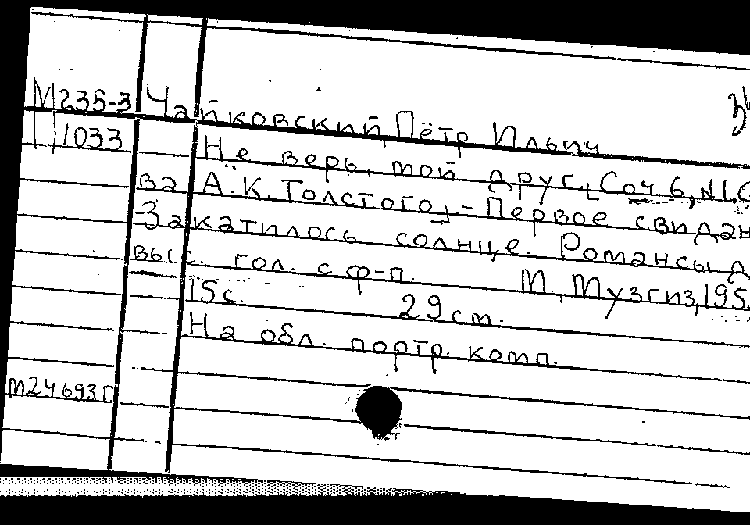 М235-3 Чайковский, Пётр Ильич
1033 Не верь, мой друг, [Соч 6, №1. С
ва А.К. Толстого] - Первое свидан
Закатилось солнце. Романсы д
выс. гол. с ф-п. М, Музгиз, 195
15с. 29 см.
На обл. портр. комп.
М24693Г